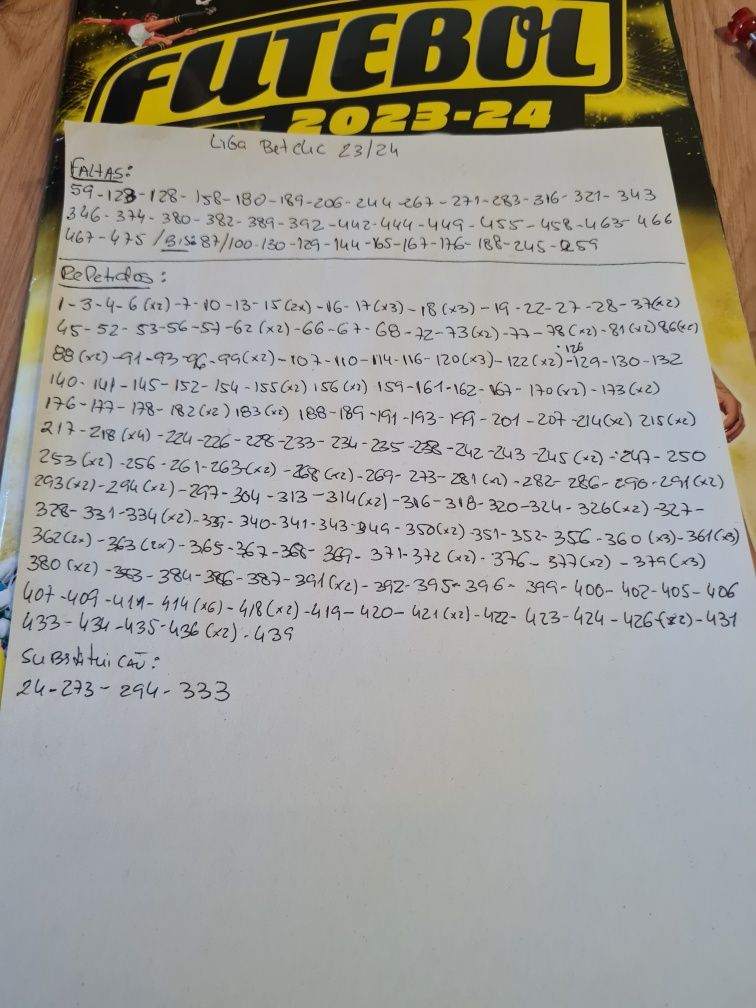 FUTEBOL
2023-24
Liga Betclic 23/24
FALTAS:
59-123-128-158-180-189-206-244-267-271-283-316-321-343
346-374-380-382-389-392-442-444-449-455-458-463-466
467-475/BIS:87/100-130-129-144-165-167-176-188-245-259
Repetidos:
1-3-4-6(x2)-7-10-13-15(2x)-16-17(x3)-18(x3)-19-22-27-28-37(x2)
45-52-53-56-57-62(x2)-66-67-68-72-73(x2)-77-78(x2)-81(x2)86(x2)
88(x2)-91-93-96-99(x2)-107-110-114-116-120(x3)-122(x2)-126-129-130-132
140-141-145-152-154-155(x2)156(x2)159-161-162-167-170(x2)-173(x2)
176-177-178-182(x2)183(x2)188-189-191-193-199-201-207-214(x2)215(x2)
217-218(x4)-224-226-228-233-234-235-238-242-243-245(x2)-247-250
253(x2)-256-261-263(x2)-268(x2)-269-273-281(x2)-282-286-290-291(x2)
293(x2)-294(x2)-297-304-313-314(x2)-316-318-320-324-326(x2)-327-
328-331-334(x2)-339-340-341-343-349-350(x2)-351-352-356-360(x3)-361(x3)
362(2x)-363(2x)-365-367-368-369-371-372(x2)-376-377(x2)-379(x3)
380(x2)-383-384-386-387-391(x2)-392-395-396-399-400-402-405-406
407-409-411-414(x6)-418(x2)-419-420-421(x2)-422-423-424-426(x2)-431
433-434-435-436(x2)-439
Substituicão:
24-273-294-333